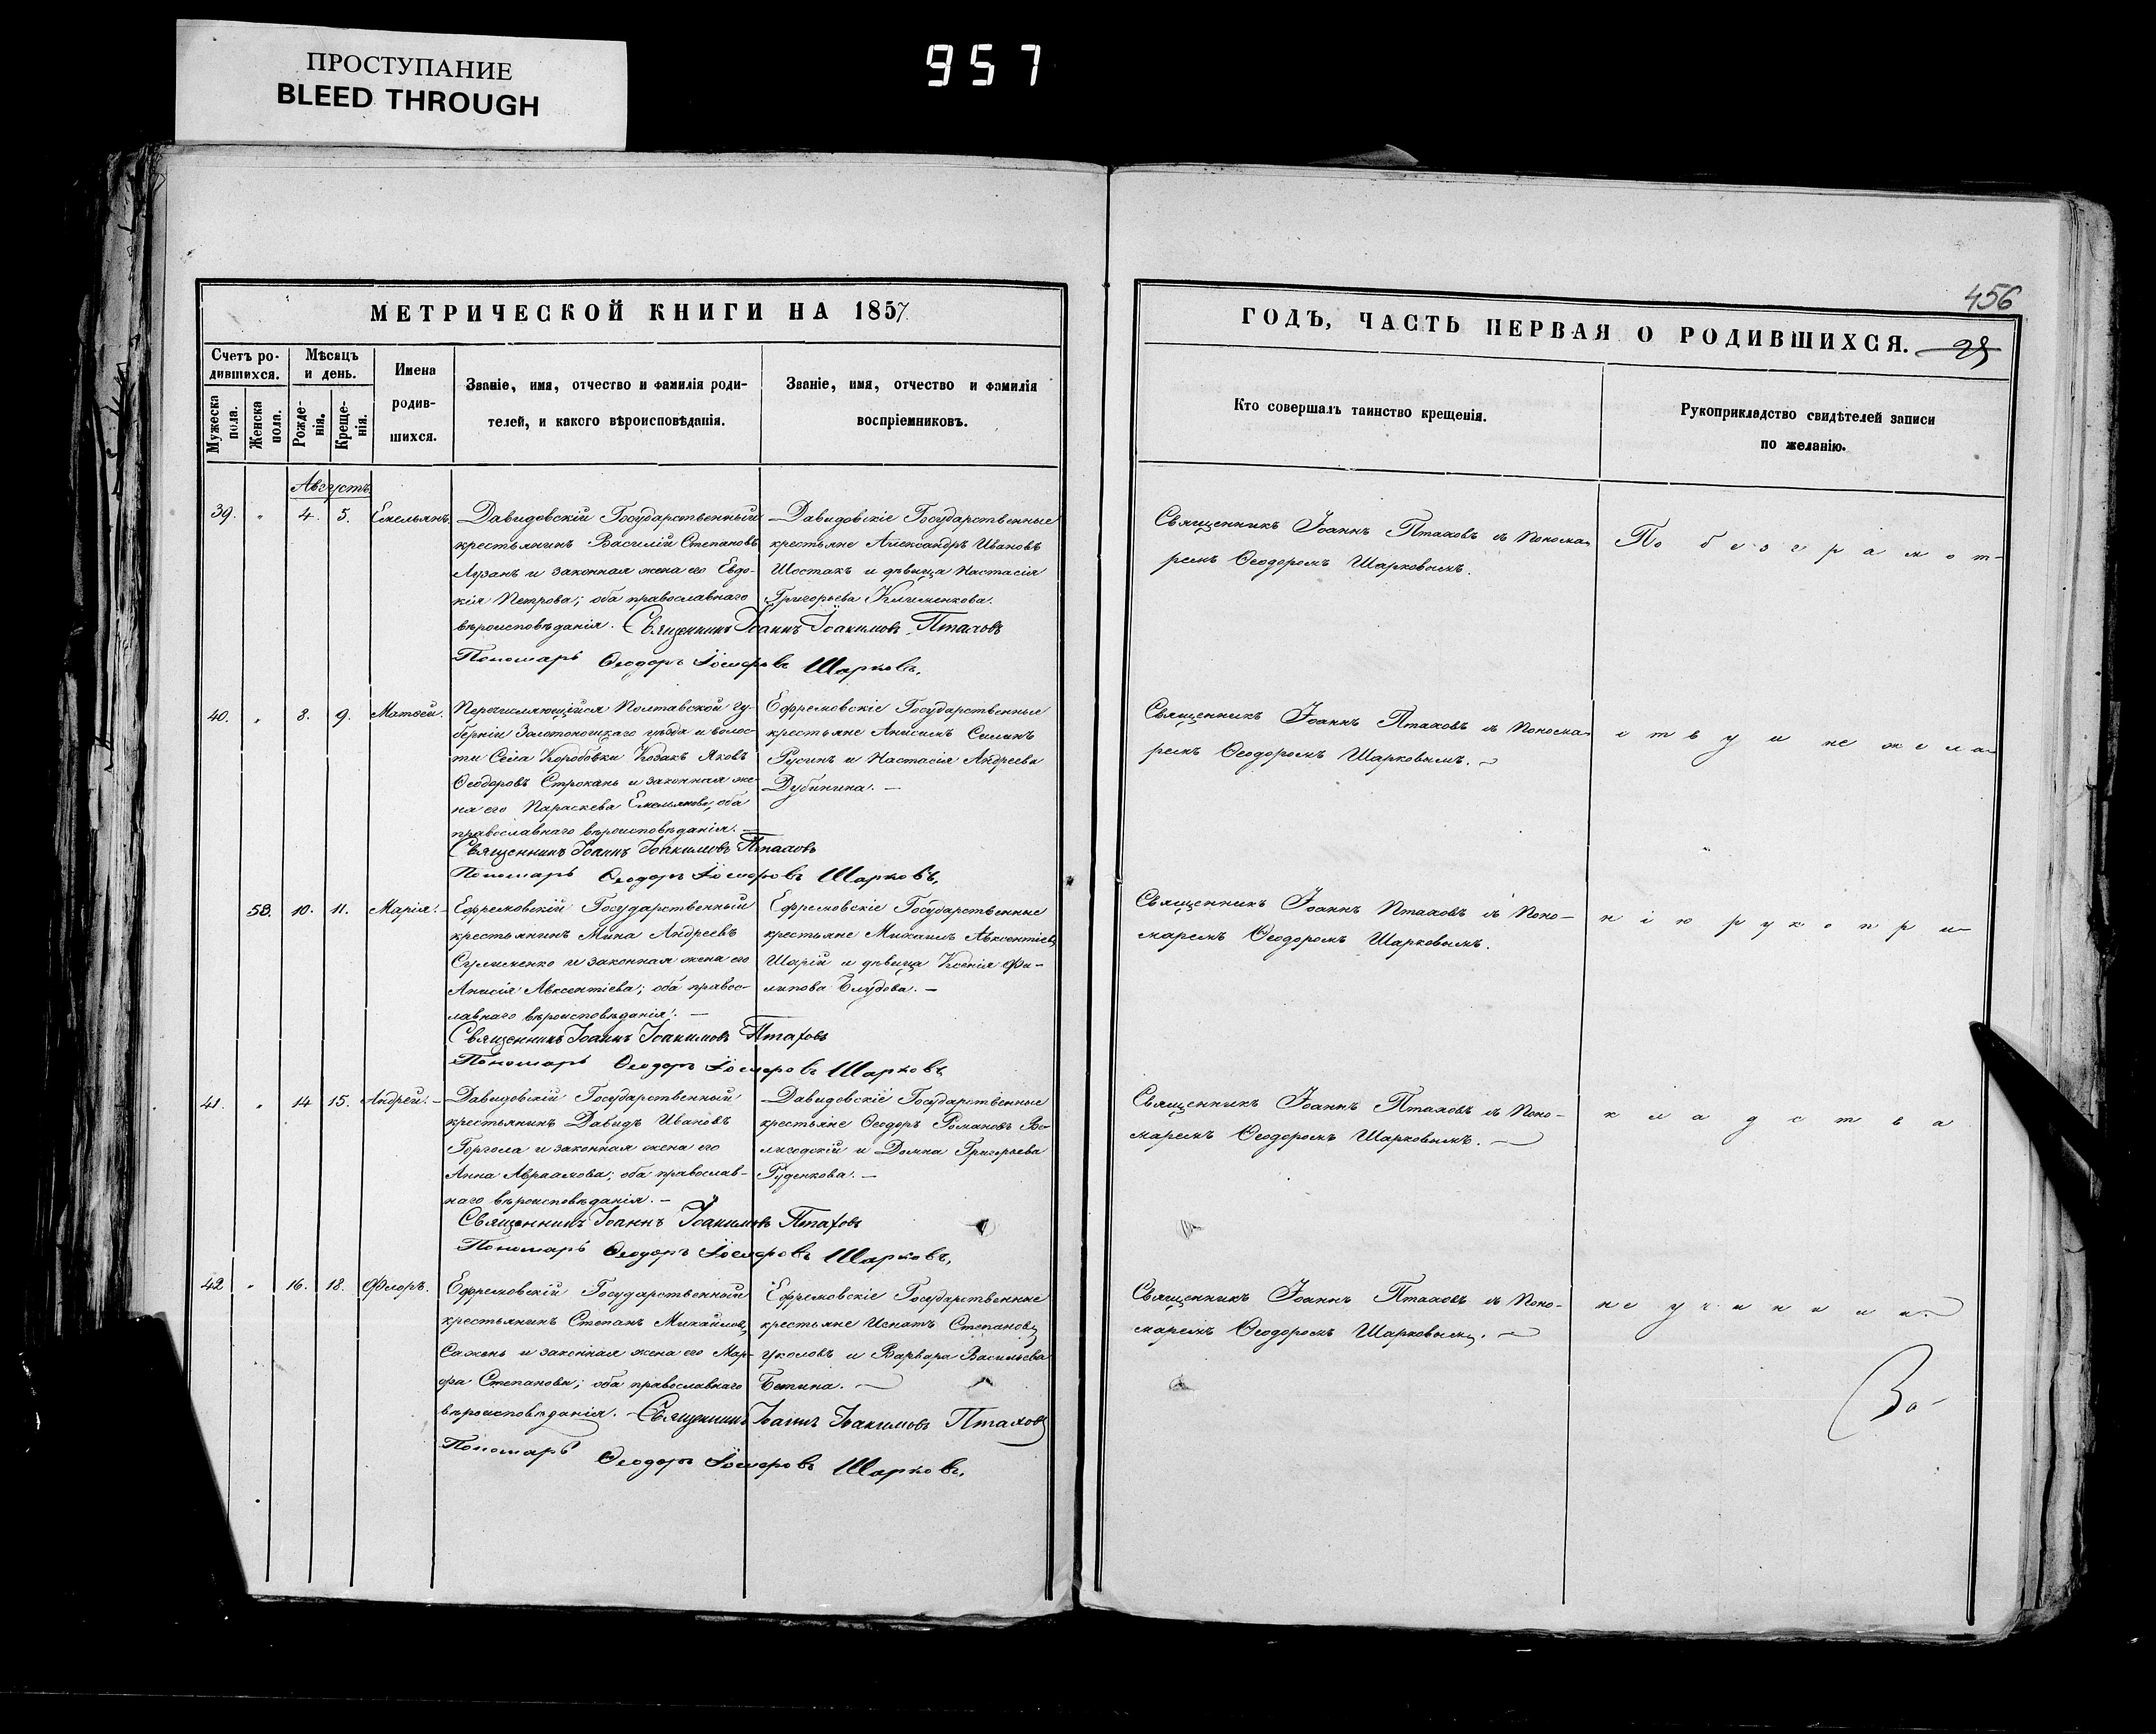 ПРОСТУПАНИЕ
BLEED THROUGH
957
МЕТРИЧЕСКОЙ КНИГИ НА 1857
Счетъ ро-
дившихся.
Мужеска
пола.
Женска
пола.
Мѣсяцъ
и день.
Рожде-
нія.
Креще-
нія.
Имена
родив-
шихся.
Званіе, имя, отчество и фамилія роди-
телей, и какого вѣроисповѣданія.
Званіе, имя, отчество и фамилія
воспріемниковъ.
Августъ
39. " 4. 5. Емельянъ.
Давидовскій Государственный
крестьянинъ Василій Степановъ
Лузанъ и законная жена его Евдо-
кія Петрова; оба православнаго
вѣроисповѣданія. Священникъ Іоаннъ Іоакимовъ Птаховъ
Пономарь Ѳеодоръ Шарковъ.
Давидовскіе Государственные
крестьяне Александръ Ивановъ
Шостакъ и дѣвица Настасія
Григорьева Клименкова.
40. " 8. 9. Матѳей.
Перечисляющійся Полтавской гу-
берніи Золотоношскаго уѣзда и волос-
ти Села Коробовки Козакъ Яковъ
Ѳеодоровъ Строкань и законная же-
на его Параскева Емельянова, оба
православнаго вѣроисповѣданія. —
Священникъ Іоаннъ Іоакимовъ Птаховъ
Пономарь Ѳеодоръ Шарковъ.
Ефремовскіе Государственные
крестьяне Анисимъ Силинъ
Русинъ и Настасія Андреева
Дубинина. —
58. 10. 11. Марія. —
Ефремовскій Государственный
крестьянинъ Мина Андреевъ
Сулименко и законная жена его
Анисія Авксентіева; оба правос-
лавнаго вѣроисповѣданія. —
Священникъ Іоаннъ Іоакимовъ Птаховъ
Пономарь Ѳеодоръ Шарковъ
Ефремовскіе Государственные
крестьяне Михаилъ Авксентіевъ
Шарій и дѣвица Ксенія Фи-
липова Блудова. —
41. " 14 15. Андрей. —
Давидовскій Государственный
крестьянинъ Давидъ Ивановъ
Горгола и законная жена его
Анна Авраамова; оба православ-
наго вѣроисповѣданія. —
Священникъ Іоаннъ Іоакимовъ Птаховъ
Пономарь Ѳеодоръ Шарковъ.
Давидовскіе Государственные
крестьяне Ѳеодоръ Романовъ
и Домна Григорьева
Руденкова. —
42 " 16. 18. Флоръ.
Ефремовскій Государственный
крестьянинъ Степанъ Михайловъ
Сажень и законная жена его Мар-
фа Степанова; оба православнаго
вѣроисповѣданія. Священникъ Іоаннъ Іоакимовъ Птаховъ
Пономарь Ѳеодоръ Шарковъ.
Ефремовскіе Государственные
крестьяне Игнатъ Степановъ
Уколовъ и Варвара Васильева
Бетина.
456
ГОДЪ, ЧАСТЬ ПЕРВАЯ О РОДИВШИХСЯ.
Кто совершалъ таинство крещенія.
Рукоприкладство свидѣтелей записи
по желанію.
Священникъ Іоаннъ Птаховъ съ Понома-
ремъ Ѳеодоромъ Шарковымъ.
По безграмот-
Священникъ Іоаннъ Птаховъ съ Понома-
ремъ Ѳеодоромъ Шарковымъ.
ству и не жела-
Священникъ Іоаннъ Птаховъ съ Поно-
маремъ Ѳеодоромъ Шарковымъ.
нію рукопри-
Священникъ Іоаннъ Птаховъ съ Поно-
маремъ Ѳеодоромъ Шарковымъ.
кладства
Священникъ Іоаннъ Птаховъ съ Поно-
маремъ Ѳеодоромъ Шарковымъ.
не учинили.